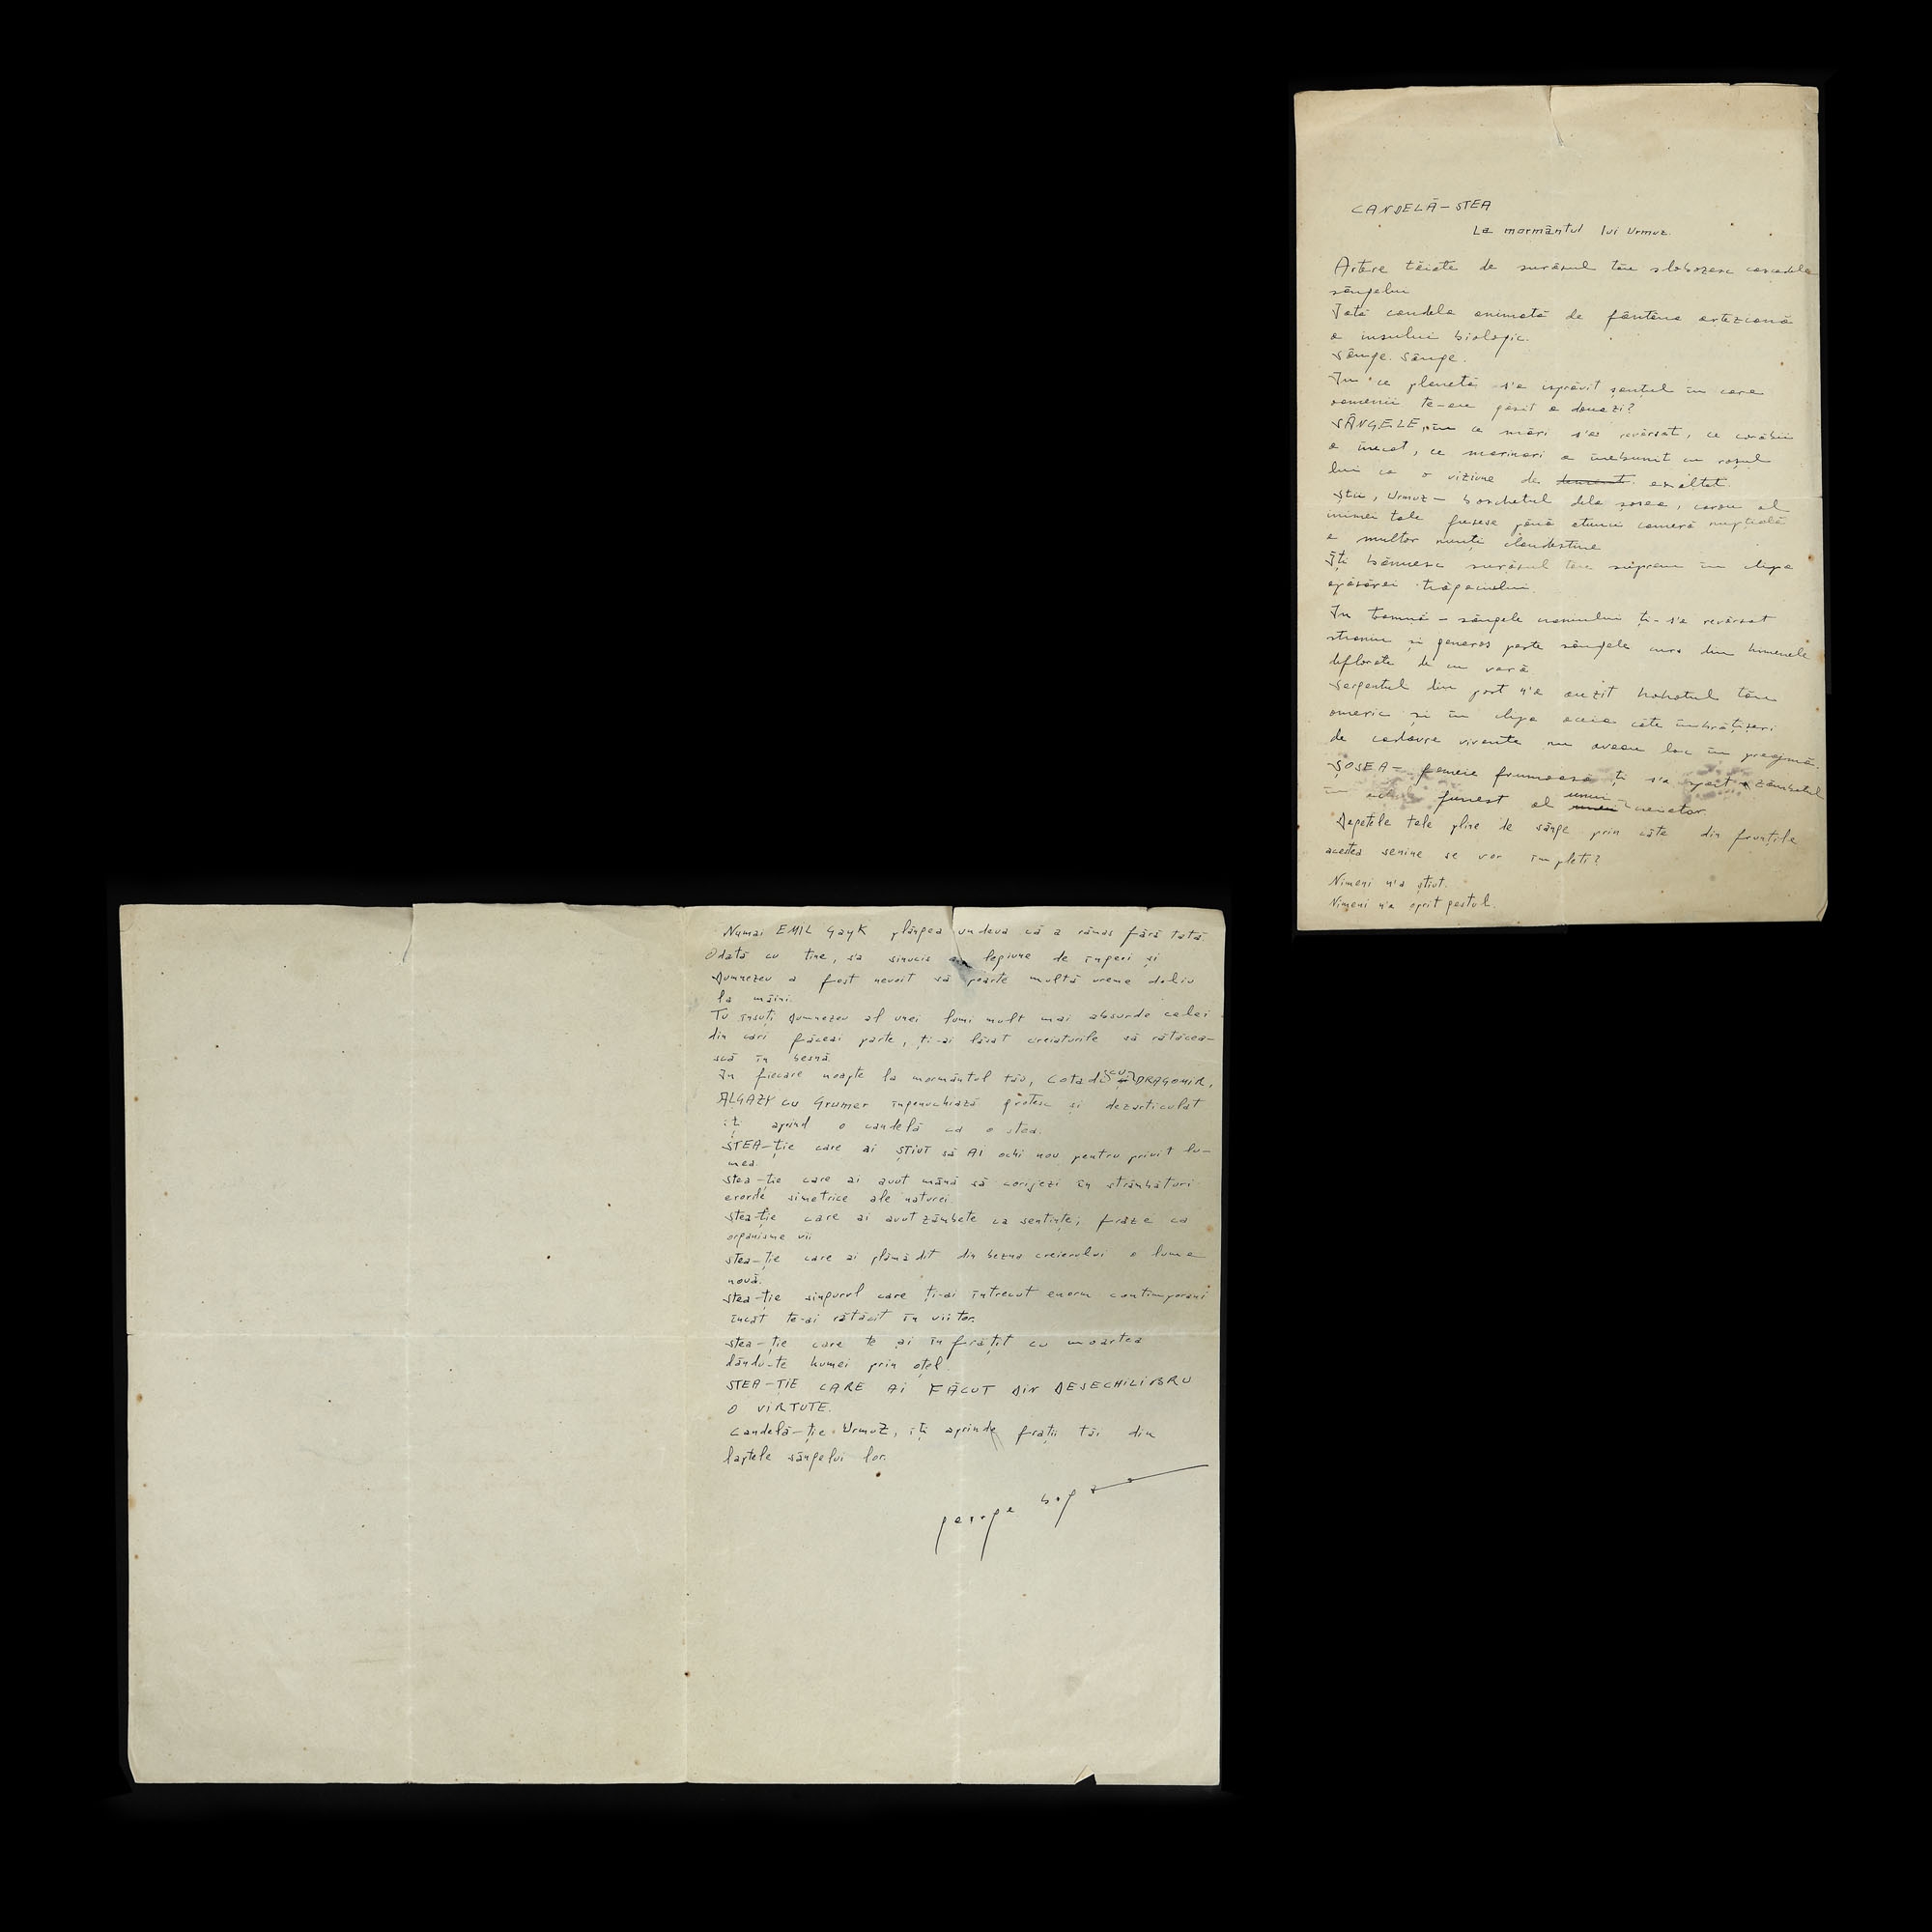 CANDELĂ – STEA
La mormântul lui Urmuz.
Artere tăiate de surâsul tău slobozesc cascadele
sângelui
Iată candela animată de fântâna arteziană
a insului biologic.
Sânge. Sânge.
În ce planetă s'a isprăvit șanțul în care
oamenii te-au găsit a doua zi?
SÂNGELE, în ce mări s'a revărsat, ce corăbii
a înecat, ce marinari a înebunit cu roșul
lui ca o viziune de exaltat.
Știi, Urmuz – boschetul dela șosea, al
inimei tale fusese până atunci cameră nupțială
a multor nunți clandestine
Îți bănuesc surâsul tău suprem în clipa
apăsărei trăgaciului.
În toamnă – sângele craniului ți-s'a revărsat
straniu și generos peste sângele curs din himenele
deflorate de cu vară
Sergentul din post n'a auzit hohotul tău
omeric și în clipa aceia câte îmbrățișeri
de cadavre vivante nu aveau loc în preajmă.
ȘOSEA – femeie frumoasă ți s'a zâmbetul
în funest al unui creiator.
Degetele tale pline de sânge prin câte din frunțile
acestea senine se vor împleti?
Nimeni n'a știut.
Nimeni n'a oprit gestul.
Numai EMIL Gayk plângea undeva că a rămas fără tată.
Odată cu tine, s'a sinucis legiune de îngeri și
Dumnezeu a fost nevoit să poarte multă vreme doliu
la mâini.
Tu însuți Dumnezeu al unei lumi mult mai absurde celei
din cari făceai parte, ți-ai lăsat creiaturile să rătăcea-
scă în beznă.
În fiecare noapte la mormântul tău, Cotadi cu DRAGOMIR,
ALGAZY cu Grumer îngenuchiază grotesc și dezarticulat
îți aprind o candelă ca o stea.
STEA – ție care ai ȘTIUT să AI ochi nou pentru privit lu-
mea.
stea – ție care ai avut mână să corijezi în strâmbături
erorile simetrice ale naturei.
stea – ție care ai avut zâmbete ca sentințe, fraze ca
organisme vii
stea – ție care ai plămădit din bezna creierului o lume
nouă.
stea – ție singurul care ți-ai întrecut enorm contimporani
încât te-ai rătăcit în viitor.
stea – ție care te ai înfrățit cu moartea
dându-te humei prin oțel.
STEA – ȚIE CARE AI FĂCUT DIN DESECHILIBRU
O VIRTUTE.
Candelă – ție Urmuz, îți aprinde frații tăi din
laptele sângelui lor.
george bogza